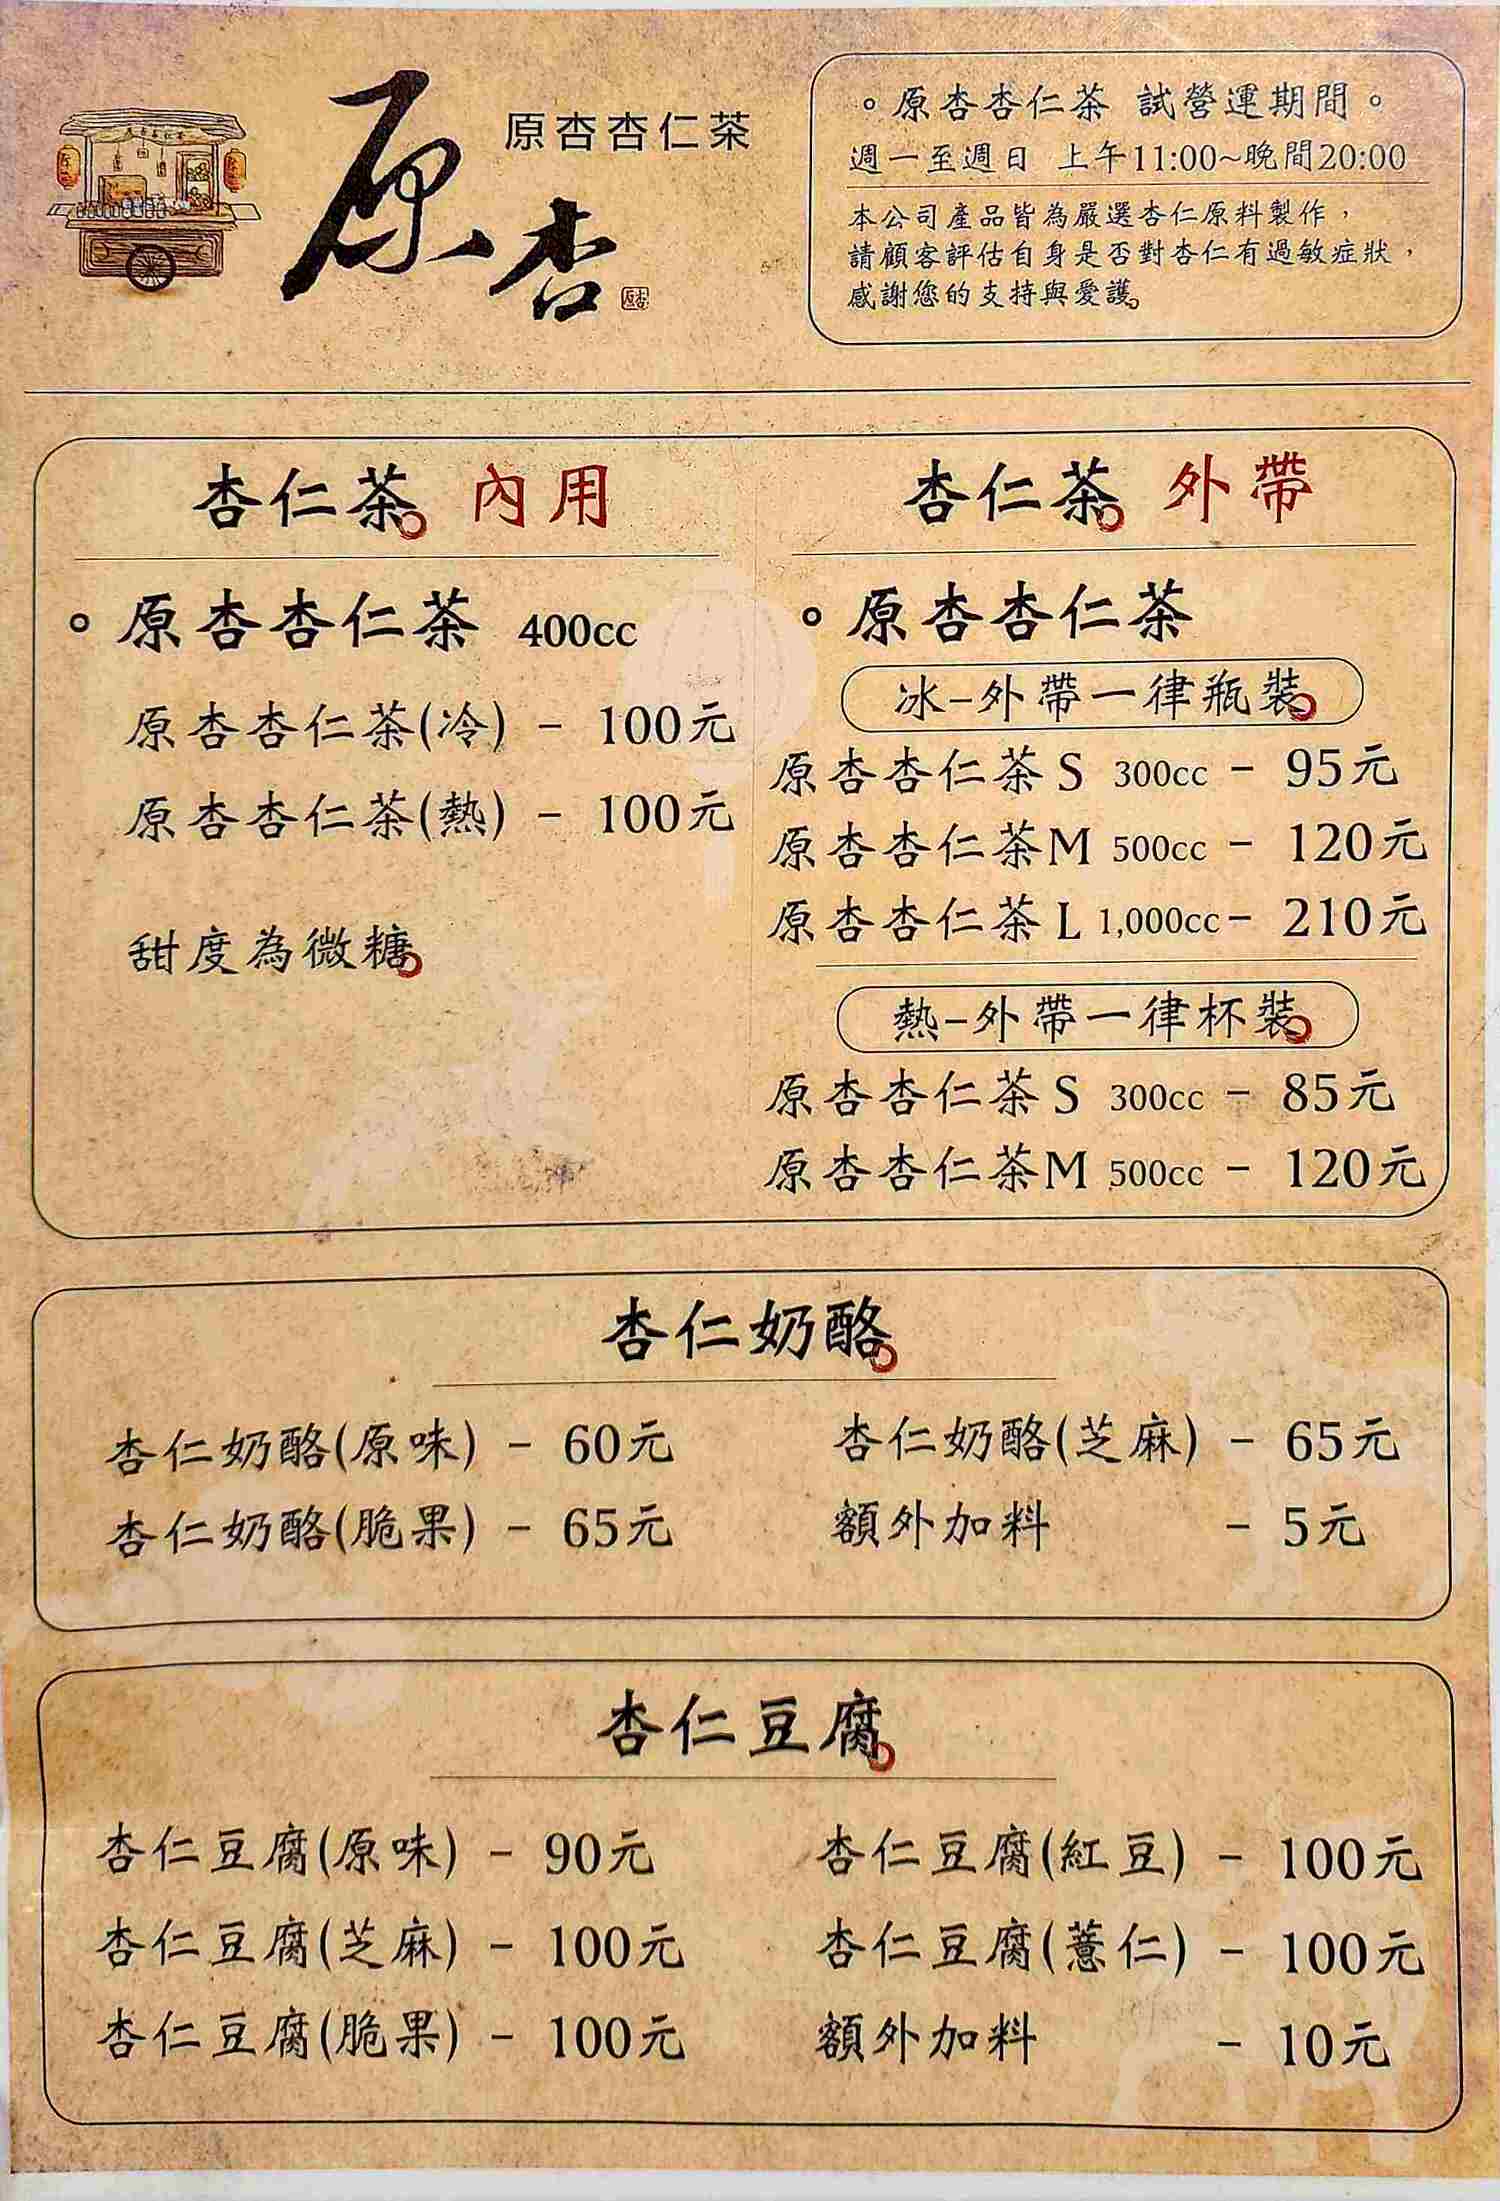 原杏
原杏杏仁茶
。原杏杏仁茶 試營運期間。
週一至週日 上午11:00~晚間20:00
本公司產品皆為嚴選杏仁原料製作，
請顧客評估自身是否對杏仁有過敏症狀，
感謝您的支持與愛護。
杏仁茶。內用
。原杏杏仁茶 400cc
原杏杏仁茶(冷) - 100元
原杏杏仁茶(熱) - 100元
甜度為微糖。
杏仁茶。外帶
。原杏杏仁茶
冰-外帶一律瓶裝。
原杏杏仁茶S 300cc - 95元
原杏杏仁茶M 500cc - 120元
原杏杏仁茶L 1,000cc - 210元
熱-外帶一律杯裝。
原杏杏仁茶S 300cc - 85元
原杏杏仁茶M 500cc - 120元
杏仁奶酪。
杏仁奶酪(原味) - 60元
杏仁奶酪(脆果) - 65元
杏仁奶酪(芝麻) - 65元
額外加料 - 5元
杏仁豆腐。
杏仁豆腐(原味) - 90元
杏仁豆腐(芝麻) - 100元
杏仁豆腐(脆果) - 100元
杏仁豆腐(紅豆) - 100元
杏仁豆腐(薏仁) - 100元
額外加料 - 10元